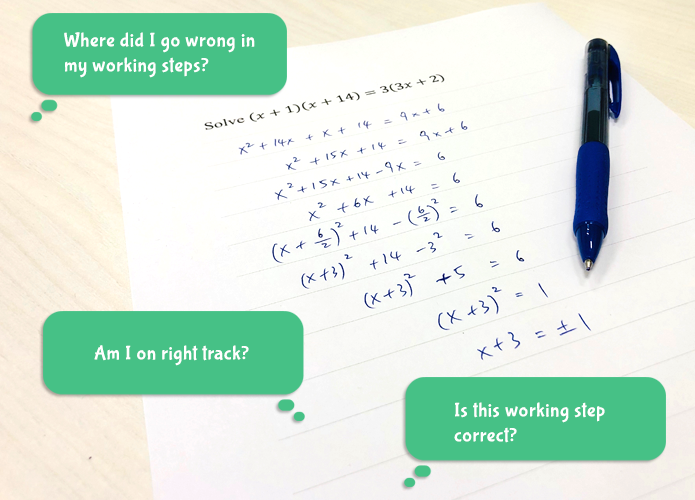 Where did I go wrong in
my working steps?
Solve (x + 1)(x + 14) = 3(3x + 2)
x² + 14x + x + 14 = 9x + 6
x² + 15x + 14 = 9x + 6
x² + 15x + 14 - 9x = 6
x² + 6x + 14 = 6
(x + 6/2)² + 14 - (6/2)² = 6
(x+3)² + 14 - 3² = 6
(x+3)² + 5 = 6
(x+3)² = 1
x+3 = ±1
Am I on right track?
Is this working step
correct?